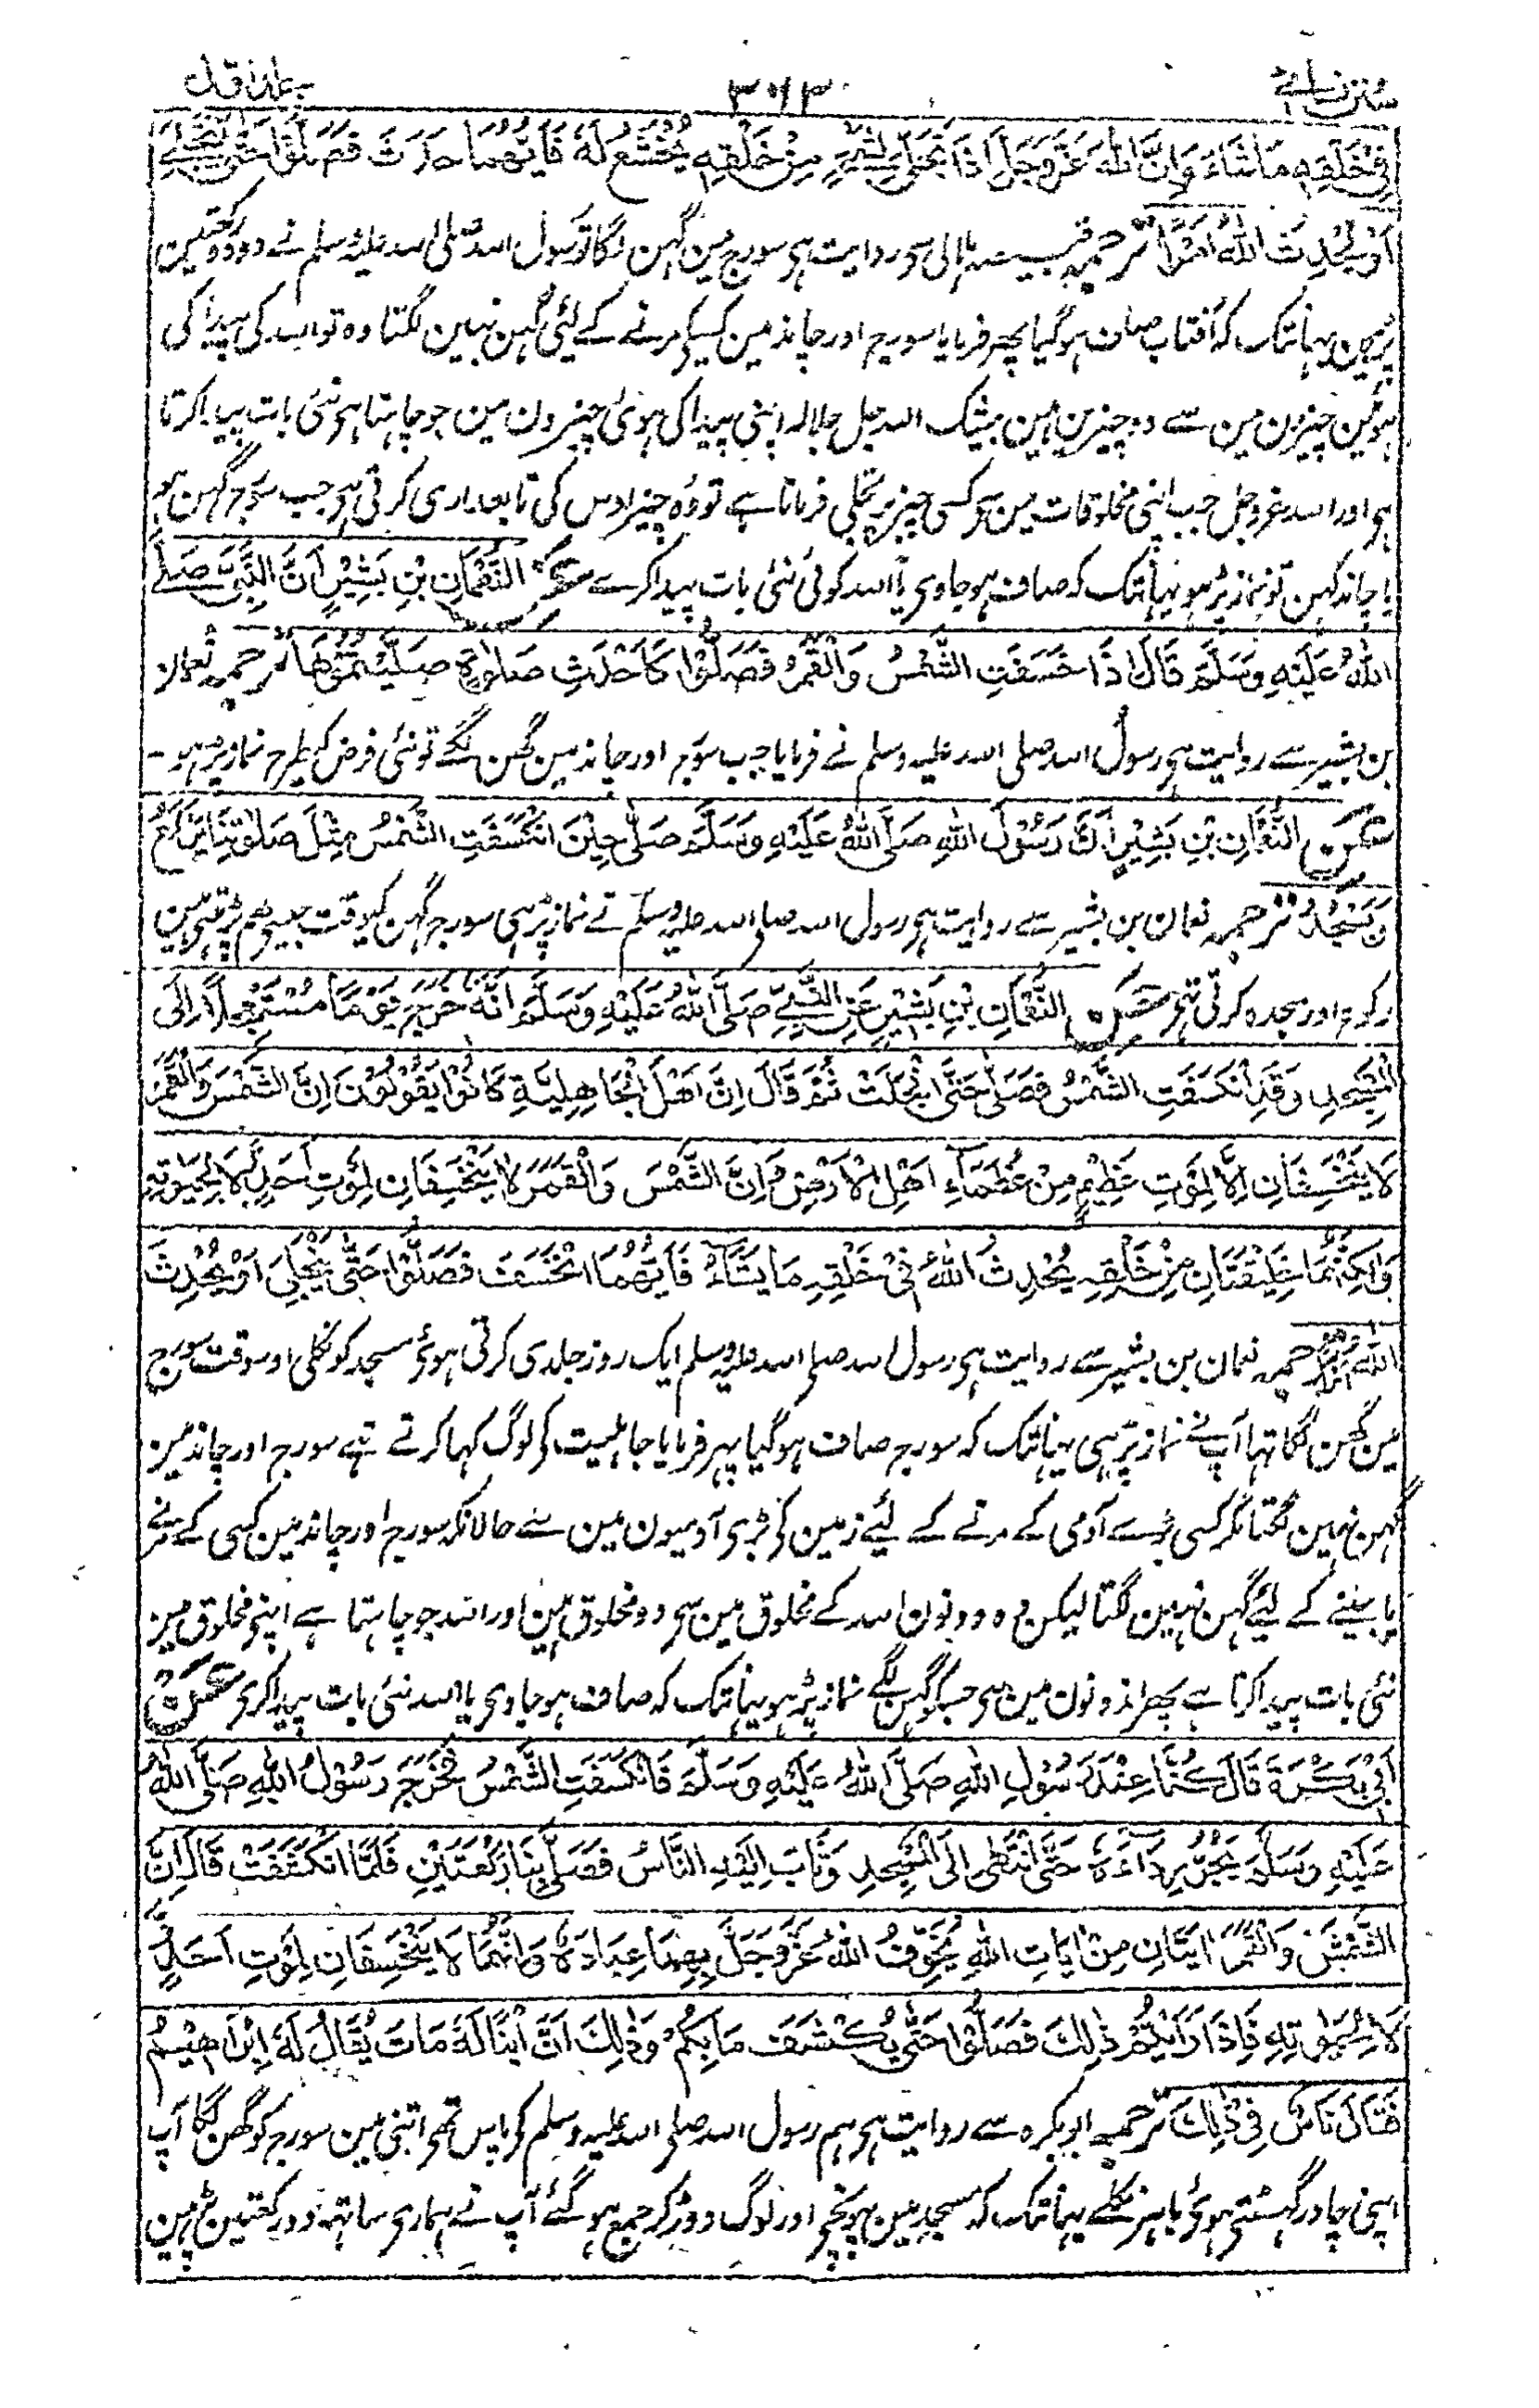 سنن نسائی ۳۶۳ جلد اول
فِيْ خَلْقِهٖ مَا شَاءَ وَاِنَّ اللّٰهَ عَزَّ وَجَلَّ اِذَا تَجَلّٰى لِشَيْءٍ مِنْ خَلْقِهٖ يَخْشَعُ لَهٗ فَاَيُّهُمَا حَدَثَ فَصَلُّوْا حَتّٰى يَنْجَلِيَ
اَوْ يُحْدِثَ اللّٰهُ اَمْرًا ترجمہ قبیصہ ہلالی سی روایت ہی سورج مین گہن لگا تو رسول اللہ صلی اللہ علیہ وسلم نے دو دو رکعتین
پڑہین یہانتک کہ آفتاب صاف ہوگیا پھر فرمایا سورج اور چاند مین کسیکے مرنے کے لئی گہن نہین لگتا وہ تو اللہ کی پیدا کی
ہوئین چیزون مین سے دو چیزین ہین بیشک اللہ جل جلالہ اپنی پیدا کی ہوئی چیزون مین جو چاہتا ہی نئی بات پیدا کرتا
ہی اور اللہ عزوجل جب اپنی مخلوقات مین سی کسی چیز پر تجلی فرماتا ہے تو وہ چیز اوس کی تابعداری کرتی ہی جب سورج گہن ہو
یا چاند گہن تو نماز پڑہو یہانتک کہ صاف ہو جاوی یا اللہ کوئی نئی بات پیدا کرے عَنِ النُّعْمَانِ بْنِ بَشِيْرٍ اَنَّ النَّبِيَّ صَلَّى
اللّٰهُ عَلَيْهِ وَسَلَّمَ قَالَ اِذَا خَسَفَتِ الشَّمْسُ وَالْقَمَرُ فَصَلُّوْا كَاَحْدَثِ صَلٰوةٍ صَلَّيْتُمُوْهَا ترجمہ نعمان
بن بشیر سے روایت ہی رسول اللہ صلی اللہ علیہ وسلم نے فرمایا جب سورج اور چاند مین گہن لگے تو نئی فرض کیطرح نماز پڑہو ۔
عَنِ النُّعْمَانِ بْنِ بَشِيْرٍ اَنَّ رَسُوْلَ اللّٰهِ صَلَّى اللّٰهُ عَلَيْهِ وَسَلَّمَ صَلّٰى حِيْنَ انْكَسَفَتِ الشَّمْسُ مِثْلَ صَلٰوتِنَا يَرْكَعُ
وَيَسْجُدُ ترجمہ نعمان بن بشیر سے روایت ہی رسول اللہ صلی اللہ علیہ وسلم نے نماز پڑہی سورج گہن کیوقت جیسی ہم پڑہتی ہین
رکوع اور سجدہ کرتی تہی عَنِ النُّعْمَانِ بْنِ بَشِيْرٍ عَنِ النَّبِيِّ صَلَّى اللّٰهُ عَلَيْهِ وَسَلَّمَ اَنَّهٗ خَرَجَ يَوْمًا مُسْتَعْجِلًا اِلَى
الْمَسْجِدِ وَقَدِ انْكَسَفَتِ الشَّمْسُ فَصَلّٰى حَتَّى انْجَلَتْ ثُمَّ قَالَ اِنَّ اَهْلَ الْجَاهِلِيَّةِ كَانُوْا يَقُوْلُوْنَ اِنَّ الشَّمْسَ وَالْقَمَرَ
لَا يَنْخَسِفَانِ اِلَّا لِمَوْتِ عَظِيْمٍ مِنْ عُظَمَاءِ اَهْلِ الْاَرْضِ وَاِنَّ الشَّمْسَ وَالْقَمَرَ لَا يَنْخَسِفَانِ لِمَوْتِ اَحَدٍ وَلَا لِحَيٰوتِهٖ
وَلٰكِنَّهُمَا خَلِيْقَتَانِ مِنْ خَلْقِهٖ يُحْدِثُ اللّٰهُ فِيْ خَلْقِهٖ مَا يَشَاءُ فَاَيُّهُمَا انْخَسَفَ فَصَلُّوْا حَتّٰى يَنْجَلِيَ اَوْ يُحْدِثَ
اللّٰهُ اَمْرًا ترجمہ نعمان بن بشیر سے روایت ہی رسول اللہ صلی اللہ علیہ وسلم ایک روز جلدی کرتی ہوئی مسجد کو نکلی اوسوقت سورج
مین گہن لگا تہا آپ نے نماز پڑہی یہانتک کہ سورج صاف ہوگیا پہر فرمایا جاہلیت کی لوگ کہا کرتے تہے سورج اور چاند مین
گہن نہین لگتا مگر کسی بڑے آدمی کے مرنے کے لئے زمین کی بڑی آدمیون مین سے حالانکہ سورج اور چاند مین کسی کے مرنے
یا جینے کے لئے گہن نہین لگتا لیکن وہ دونون اللہ کے مخلوق مین سی دو مخلوق ہین اور اللہ جو چاہتا ہے اپنی مخلوق مین
نئی بات پیدا کرتا ہے پھر ان دونون مین سی جسکو گہن لگے نماز پڑہو یہانتک کہ صاف ہو جاوی یا اللہ نئی بات پیدا کری عَنْ
اَبِيْ بَكْرَةَ قَالَ كُنَّا عِنْدَ رَسُوْلِ اللّٰهِ صَلَّى اللّٰهُ عَلَيْهِ وَسَلَّمَ فَانْكَسَفَتِ الشَّمْسُ فَخَرَجَ رَسُوْلُ اللّٰهِ صَلَّى اللّٰهُ
عَلَيْهِ وَسَلَّمَ يَجُرُّ رِدَاءَهٗ حَتَّى انْتَهٰى اِلَى الْمَسْجِدِ وَثَابَ اِلَيْهِ النَّاسُ فَصَلّٰى بِنَا رَكْعَتَيْنِ فَلَمَّا انْكَشَفَتْ قَالَ اِنَّ
الشَّمْسَ وَالْقَمَرَ اٰيَتَانِ مِنْ اٰيَاتِ اللّٰهِ يُخَوِّفُ اللّٰهُ عَزَّ وَجَلَّ بِهِمَا عِبَادَهٗ وَاِنَّهُمَا لَا يَنْخَسِفَانِ لِمَوْتِ اَحَدٍ وَّ
لَا لِحَيٰوتِهٖ فَاِذَا رَاَيْتُمْ ذٰلِكَ فَصَلُّوْا حَتّٰى يُكْشَفَ مَا بِكُمْ وَذٰلِكَ اَنَّ ابْنًا لَهٗ مَاتَ يُقَالُ لَهٗ اِبْرَاهِيْمُ
فَقَالَ نَاسٌ فِيْ ذٰلِكَ ترجمہ ابوبکرہ سے روایت ہی ہم رسول اللہ صلی اللہ علیہ وسلم کی پاس تھی اتنی مین سورج کو گہن لگا آپ
اپنی چادر گہسٹتی ہوئی باہر نکلے یہانتک کہ مسجد مین پہونچی اور لوگ دوڑ کر جمع ہو گئے آپ نے ہماری ساتہہ دو رکعتین پڑہین